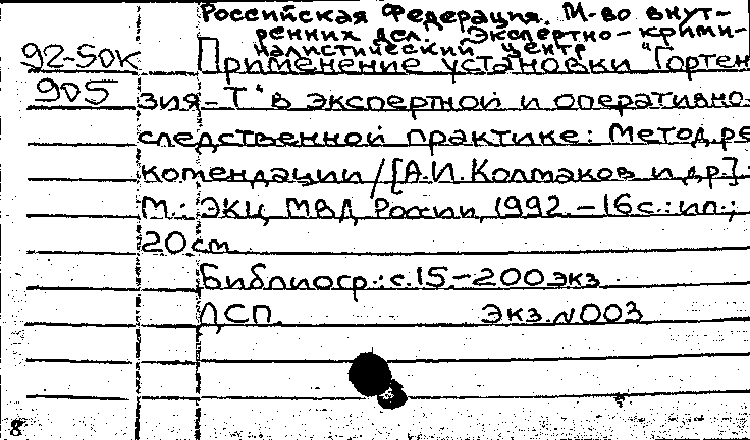 Российская Федерация. М-во внут-
ренних дел. Экспертно-крими-
налистический центр
92-50К Применение установки "Гортен
905 зия-Т" в экспертной и оперативно
следственной практике: Метод. ре
комендации / [А.И. Колмаков и др.].
М.: ЭКЦ МВД России, 1992. - 16 с.: ил.;
20 см
Библиогр.: с. 15 - 200 экз
ДСП. Экз. N003
8